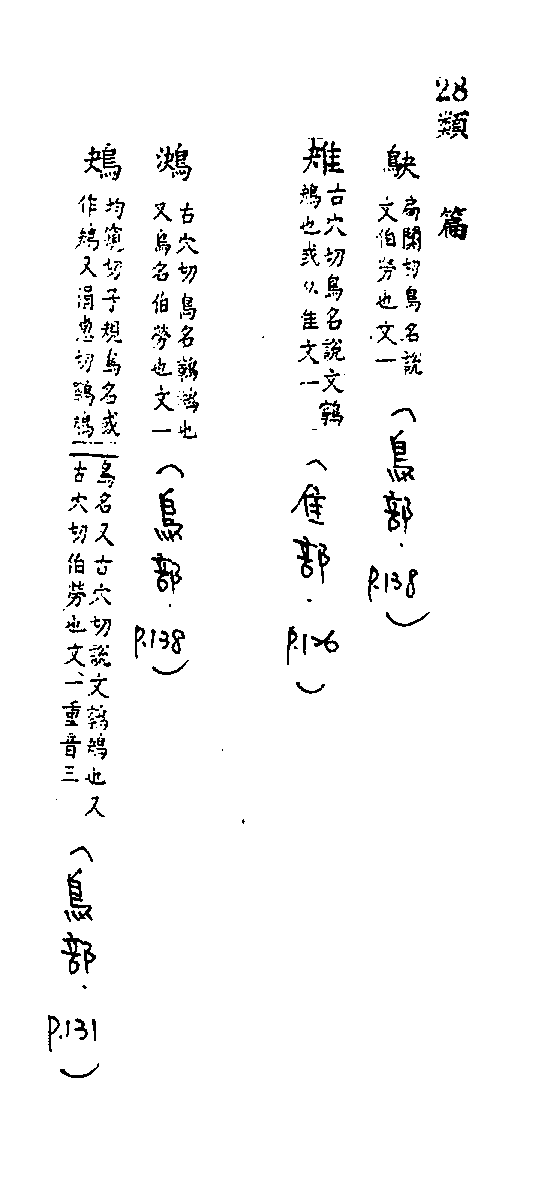 28 類篇
鴃 扃闃切鳥名說
文伯勞也文一
(鳥部.P.138)
雉 古穴切鳥名說文鸋
鴂也或从隹文一
(隹部.P.126)
古穴切鳥名鸋鴂也
又鳥名伯勞也文一
(鳥部.P.138)
均窺切子規鳥名或
作鴂又涓惠切鶗鴂
鳥名又古穴切說文鸋鴂也又
古穴切伯勞也文一重音三
(鳥部.P.131)